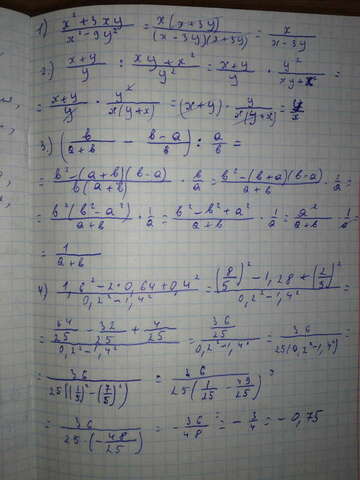 1) (x² + 3xy)/(x² - 9y²) = x(x + 3y)/((x - 3y)(x + 3y)) = x/(x - 3y)
2) (x + y)/y : (xy + x²)/y² = (x + y)/y · y²/(xy + x²) =
= (x + y)/y · y²/(x(y + x)) = (x + y) · y/(x(y + x)) = y/x
3) (b/(a + b) - (b - a)/b) : a/b =
= (b² - (a + b)(b - a))/(b(a + b)) · b/a = (b² - (b + a)(b - a))/(a + b) · 1/a =
= (b² (b² - a²))/(a + b) · 1/a = (b² - b² + a²)/(a + b) · 1/a = a²/(a + b) · 1/a =
= 1/(a + b)
4) (1,6² - 2·0,64 + 0,4²)/(0,2² - 1,4²) = ((8/5)² - 1,28 + (2/5)²)/(0,2² - 1,4²) =
= (44/25 - 32/25 + 4/25)/(0,2² - 1,4²) = (36/25)/(0,2² - 1,4²) = 36/(25(0,2² - 1,4²))
= 36/(25((1/5)² - (7/5)²)) = 36/(25(1/25 - 49/25)) =
= 36/(25 · (-48/25)) = -36/48 = -3/4 = -0,75